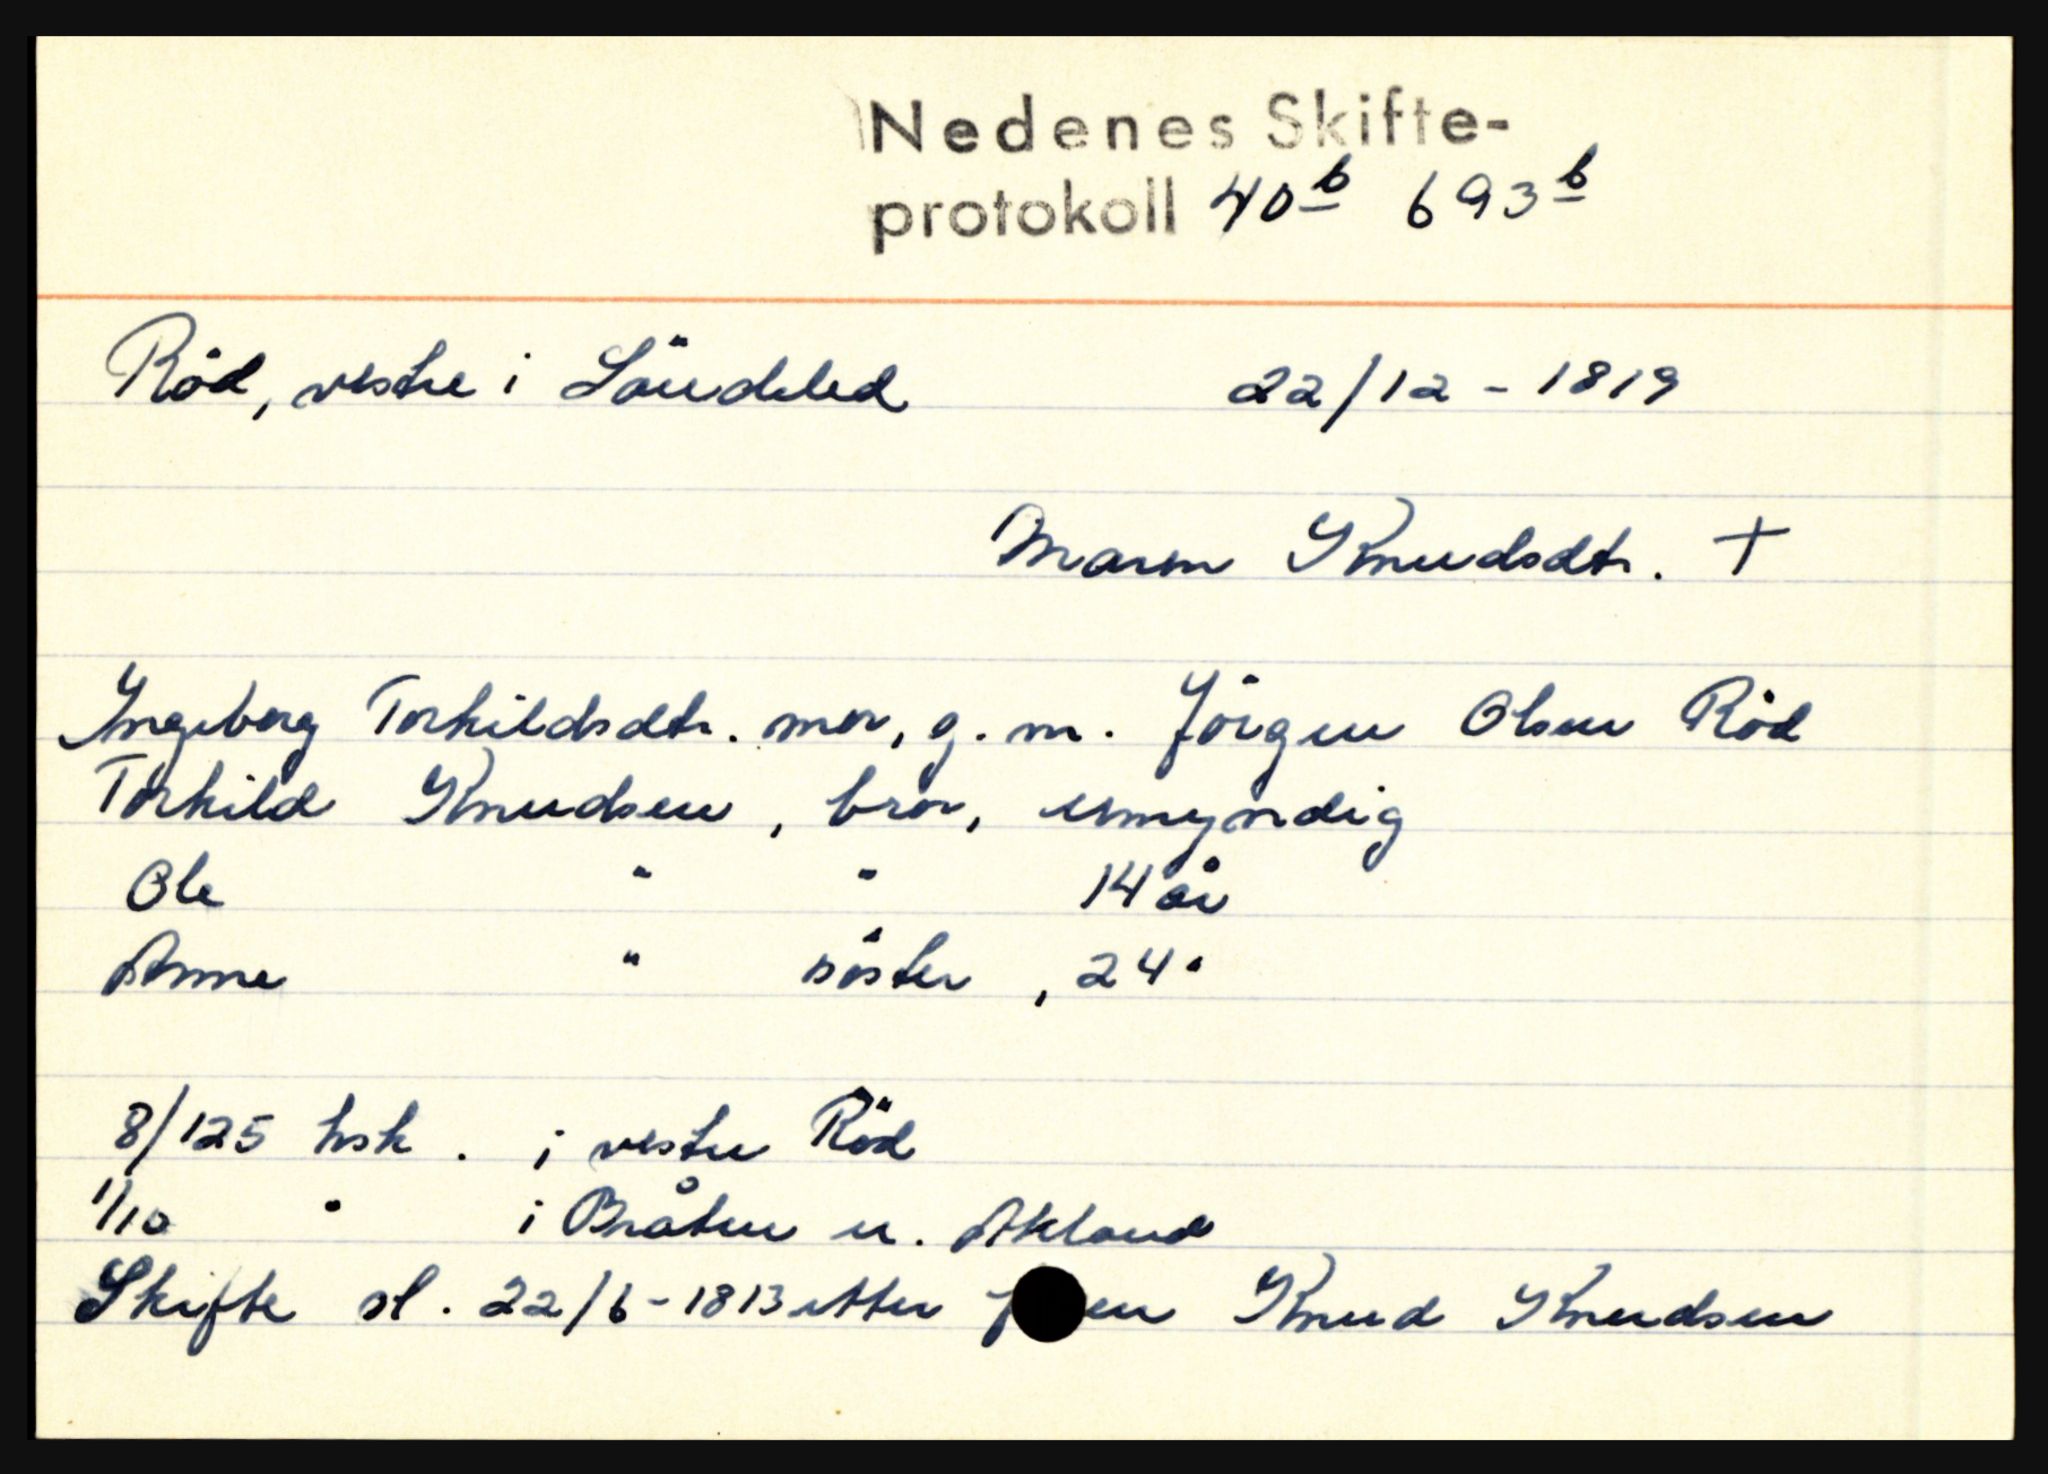 Nedenes Skifte-
protokoll 40b 693b
Röd, vestre i Söndeled 22/12-1819
Maren Knudsdtr. +
Ingeborg Torkildsdtr. mor, g.m. Jörgen Olsen Röd
Torkild Knudsen, bror, umyndig
Ole " " 14 år
Anne " söster, 24 "
8/125 hsk. i vestre Röd
1/10 " i Bråten u. Akland
Skifte sl. 22/6-1813 etter Knud Knudsen